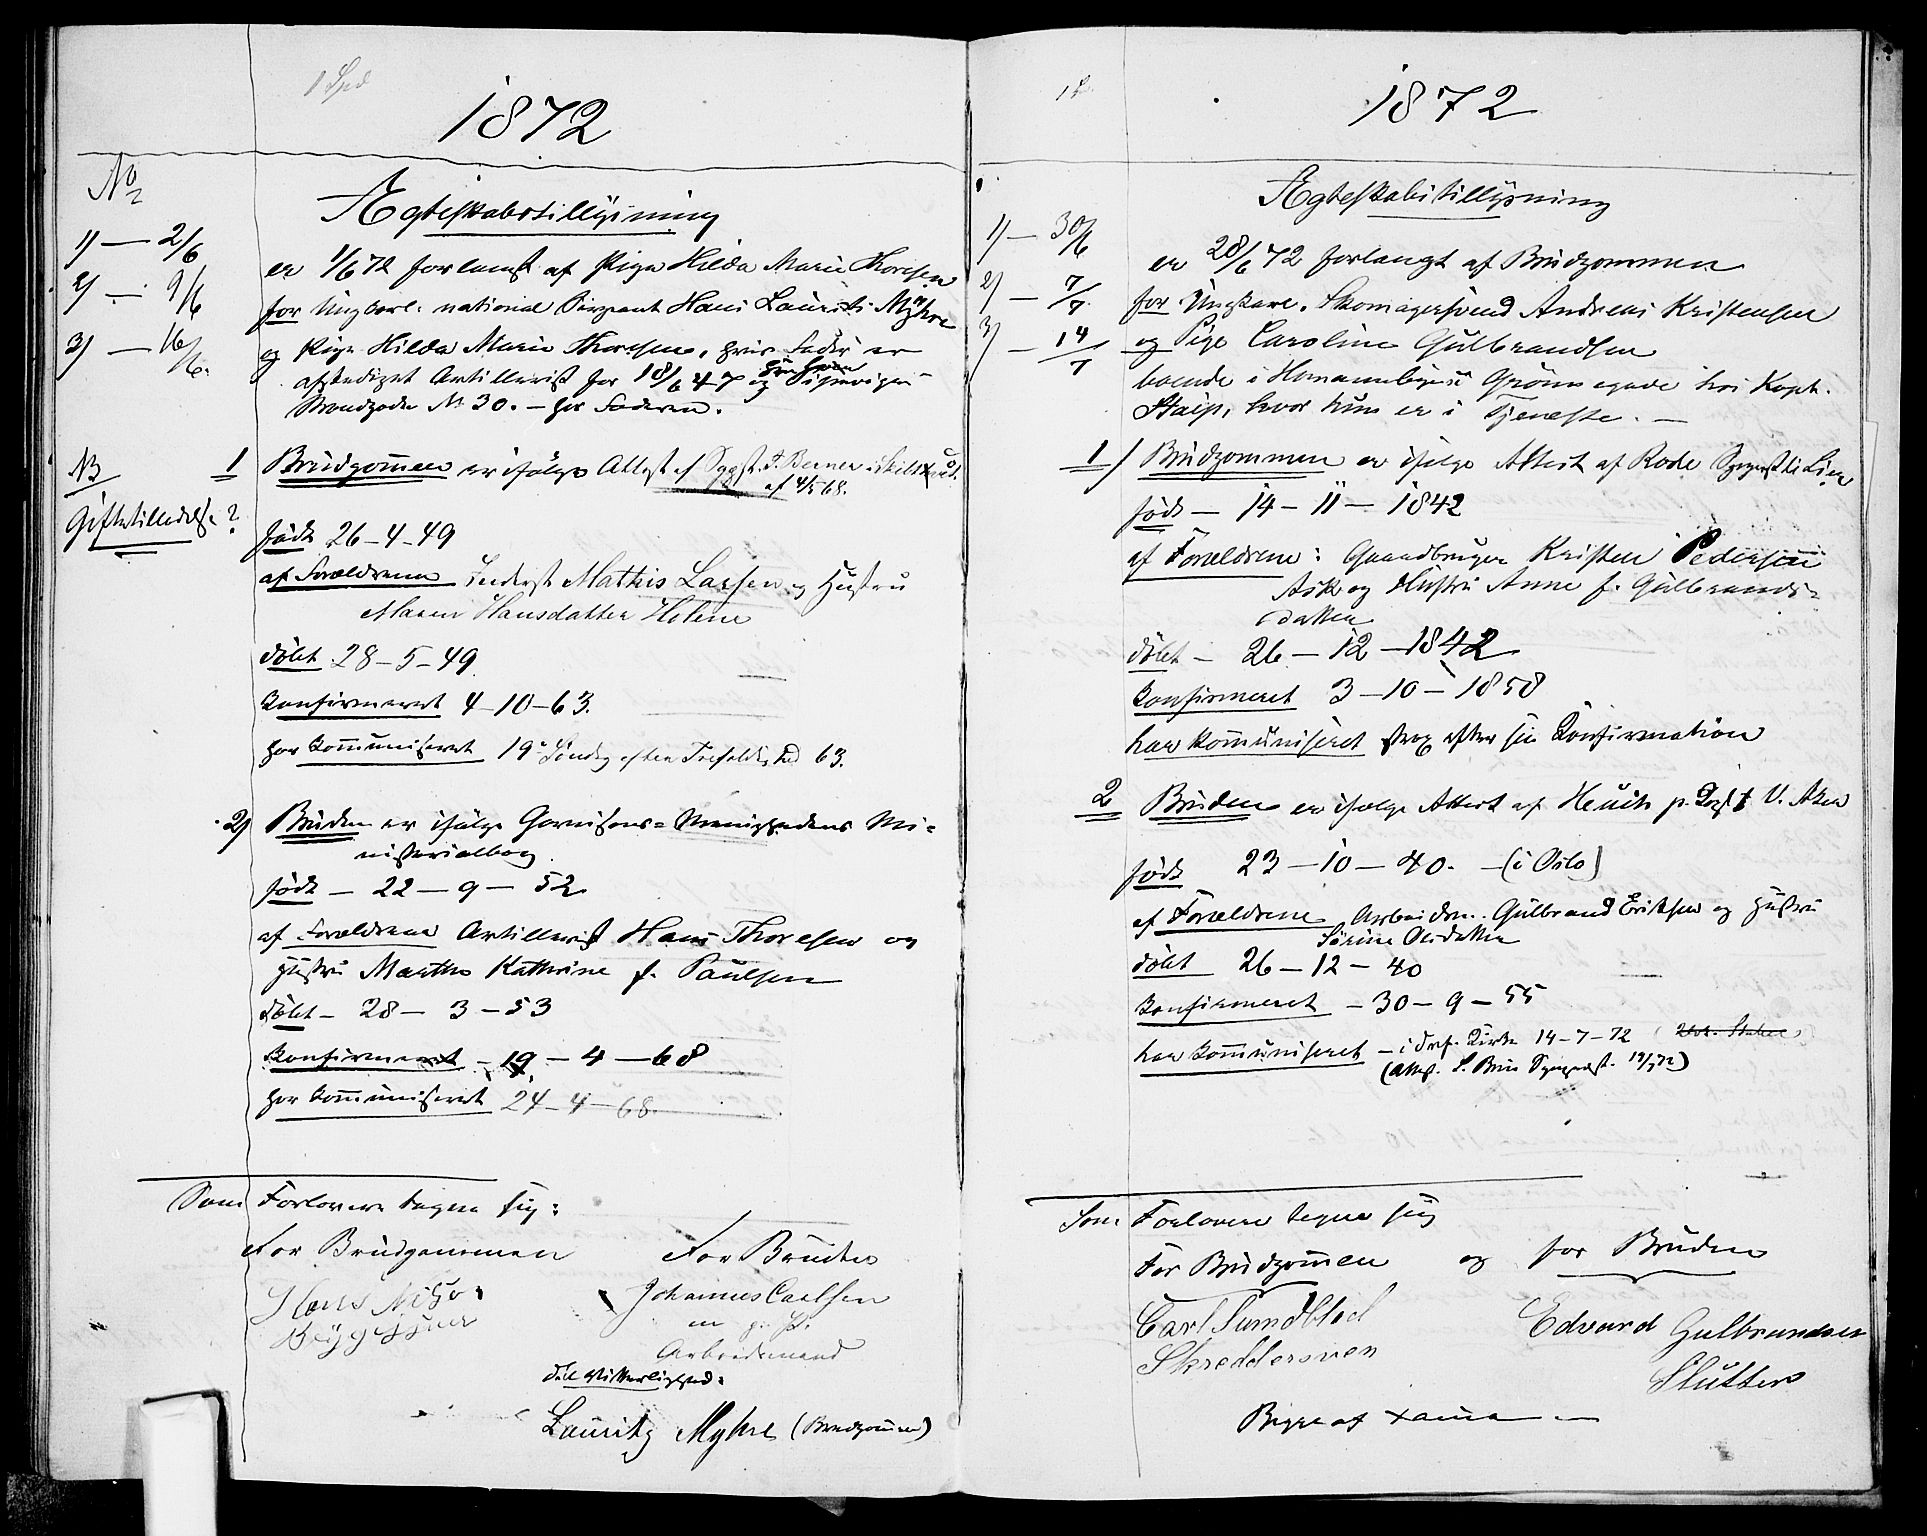 1 Spd
1872
No
Ægteskabstillysning
1) — 2/6
2) — 9/6
3) — 16/6.
er 1/6 72 forlangt af Pige Hilda Marie Thoresen
for Ungkarl. national Sergeant Hans Laurits Myhre
og Pige Hilda Marie Thoresen, hvis Fader er
afskediget Artillerist før 18/6 47 og Pipervigen
Strandgade No 30. — hos Faderen.
NB
Giftetilladelse?
1 Brudgommen er ifølge Attest af Sgpst. J. Berner
af 4/5 68.
født 26-4-49
af Forældrene Inderst Mathis Larsen og Hustru
Maren Hansdatter Holene
døbt 28-5-49
Konfirmeret 4-10-63.
har kommuniseret 19de Søndag efter Trefoldighed 63.
2) Bruden er ifølge Garnisons-Menighedens Mi-
nisterialbog
født — 22 — 9 — 52
af Forældrene Artillerist Hans Thoresen og
Hustru Marthe Kathrine f. Paulsen
døbt — 28 — 3 — 53
Konfirmeret — 19 — 4 — 68
har kommuniseret 24-4-68.
Som Forlovere tegne sig:
For Brudgommen For Bruden
Hans
Johannes Carlsen
m. p. P.
Arbeidsmand
til Vitterlighed:
Lauritz Myhre (Brudgommen)
1872
Ægteskabstillysning
1) — 30/6
2) — 7/7.
3) — 14/7
er 28/6 72 forlangt af Brudgommen
for Ungkarl. Skomagersvend Andreas Kristensen
og Pige Caroline Gulbrandsen
boende i Grønnegade hos Kapt.
hvor hun er i Tjeneste. —
1) Brudgommen er ifølge Attest af Rode Sgpst til Lier
født — 14 — 11 — 1842
af Forældrene: Gaardbruger Kristen Pedersen
Ask og Hustru Anne f. Gulbrands-
datter
døbt — 26 — 12 — 1842
Konfirmeret 3 — 10 — 1858
har kommuniseret strax efter sin Konfirmation
2 Bruden er ifølge Attest af Heuch p. V. Aker
født 23 — 10 — 40. — (i Oslo)
af Forældrene Arbeidsm. Gulbrand Eriksen og Hustru
Sørine Olsdatter
døbt 26 — 12 — 40
Konfirmeret — 30 — 9 — 55
har kommuniseret — i Kirke 14-7-72
Som Forlovere tegne sig
For Brudgommen og for Bruden
Carl Sundblad Edvard Gulbrandsen
Skreddersven Slutter
Begge af